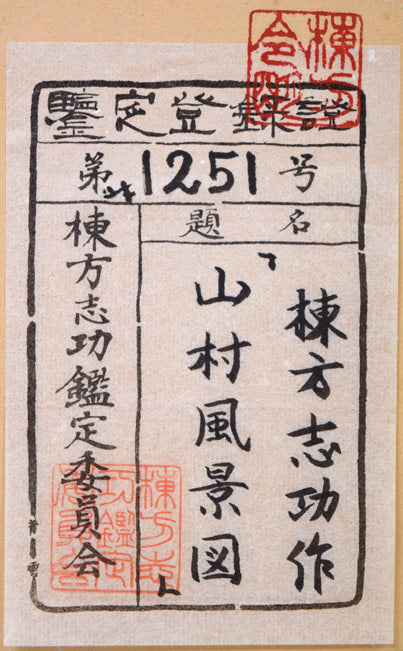 鑒定登録證
第1251号
題名
棟方志功作
「山村風景図」
棟方志功鑑定委員会
棟方志
功鑑定
委員会